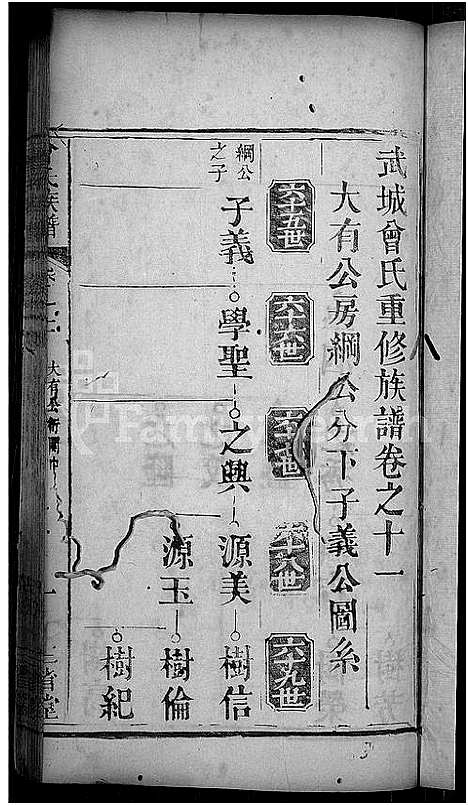 武城曾氏重修族譜卷之十一
大有公房綱公分下子義公圖系
六十五世
六十六世
六十七世
六十八世
六十九世
綱公之子
子義
學聖
之興
源美
樹信
源玉
樹倫
樹紀
氏族譜
大有公房
一